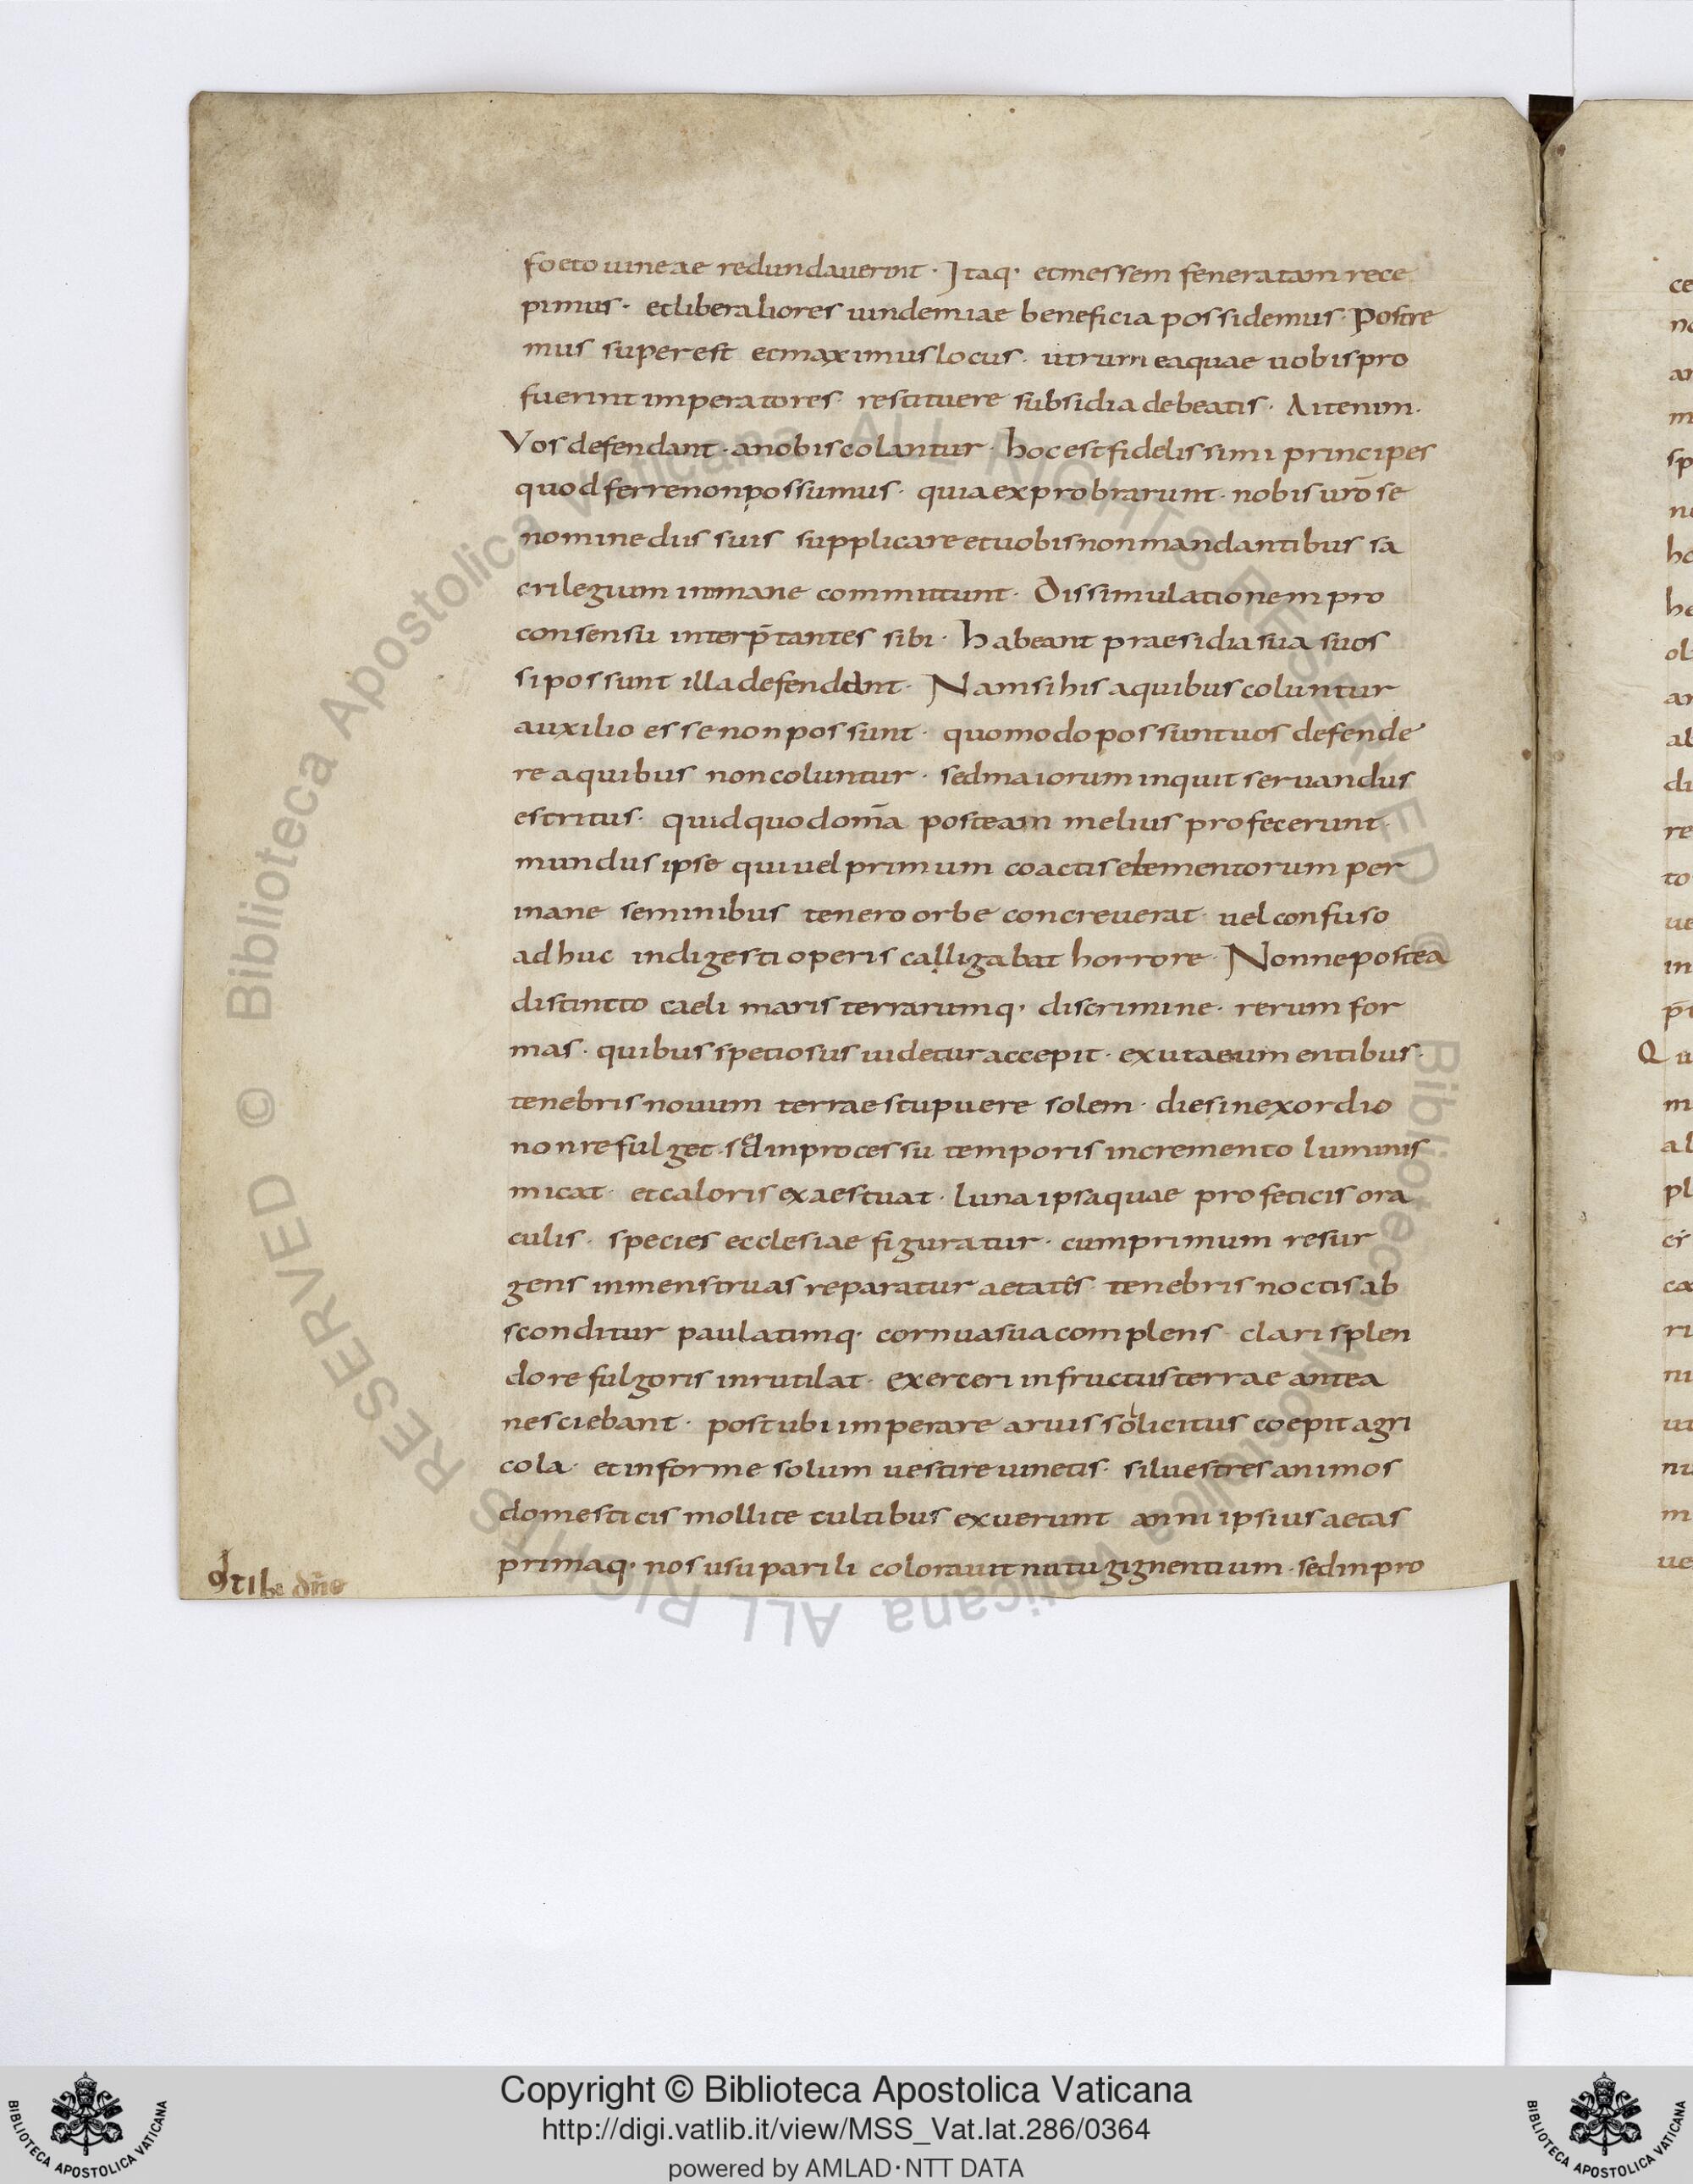 foeto uineae redundauerint · Itaq· et messem feneratam rece
pimus · et liberaliores uindemiae beneficia possidemus · Postre
mus superest et maximus locus · utrum ea quae uobis pro
fuerint imperatores · restituere subsidia debeatis · Aitenim ·
Vos defendant · a nobis colantur · hoc est fidelissimi principes
quod ferre non possumus · quia exprobrarunt · nobis uro̅ se
nomine diis suis supplicare et uobis non mandantibus sa
crilegium inmane committunt · Dissimulationem pro
consensu interp̅tantes sibi · habeant praesidia sua suos
si possunt illa defendant · Nam si his a quibus coluntur
auxilio esse non possunt · quomodo possunt uos defende
re a quibus non coluntur · sed maiorum inquit seruandus
est ritus · quid quod om̅a postea in melius profecerunt ·
mundus ipse qui uel primum coactis elementorum per
inane seminibus tenero orbe concreuerat · uel confuso
adhuc indigesti operis calligabat horrore · Nonne postea
distincto caeli maris terrarumq· discrimine · rerum for
mas · quibus speciosus uidetur accepit · exutae umentibus ·
tenebris nouum terrae stupuere solem · dies in exordio
non refulget · sed in processu temporis incremento luminis
micat · et caloris exaestuat · luna ipsa quae profeticis ora
culis · species ecclesiae figuratur · cum primum resur
gens in menstruas reparatur aetates · tenebris noctis ab
sconditur paulatimq· cornua sua complens · clari splen
dore fulgoris inrutilat · exerceri in fructus terrae antea
nesciebant · post ubi imperare aruis sollicitus coepit agri
cola · et informe solum uestire uinetis · siluestres animos
domesticis mollite cultibus exuerunt anni ipsius aetas
primaq· nos usu parili colorauit nutu gignentium · sed in pro
Copyright © Biblioteca Apostolica Vaticana
http://digi.vatlib.it/view/MSS_Vat.lat.286/0364
powered by AMLAD·NTT DATA
BIBLIOTECA APOSTOLICA VATICANA
BIBLIOTECA APOSTOLICA VATICANA
© Biblioteca Apostolica Vaticana ALL RIGHTS RESERVED © Biblioteca Apostolica Vaticana ALL RIGHTS RESERVED